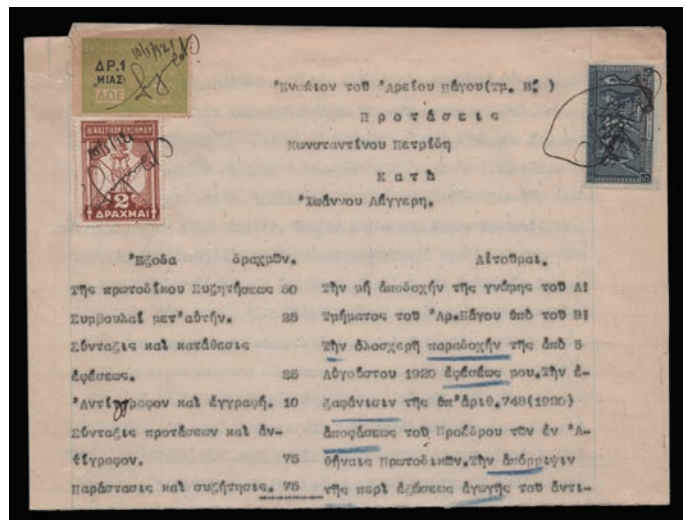 10/5/921
ΔΡ.1
ΜΙΑΣ
ΔΙΚΑΣΤΙΚΟΝ ΕΝΣΗΜΟΝ
2
ΔΡΑΧΜΑΙ
5
5
Ἐνώπιον τοῦ Ἀρείου Πάγου(Τμ. Β΄ )
Π ρ ο τ ά σ ε ι ς
Κωνσταντίνου Πετρίδη
Κ α τ ὰ
Ἰωάννου Λάγγερη.
Ἔξοδα δραχμῶν.
Τῆς πρωτοδίκου Συζητήσεως 50
Συμβουλαί μετ'αὐτήν. 25
Σύνταξις καί κατάθεσις
ἐφέσεως. 25
Ἀντίγραφον καί ἐγγραφή. 10
Σύνταξις προτάσεων καί ἀν-
τίγραφον. 75
Παράστασις καί συζήτησις. 75
Αἰτοῦμαι.
Τήν μή ἀποδοχήν τῆς γνώμης τοῦ Α!
Τμήματος τοῦ Ἀρ.Πάγου ὑπό τοῦ Β!
Τήν ὁλοσχερῆ παραδοχήν τῆς ἀπό 5
Αὐγούστου 1920 ἐφέσεώς μου.Τήν ἐ-
ξαφάνισιν τῆς ὑπ'ἀριθ.748(1920)
ἀποφάσεως τοῦ Προέδρου τῶν ἐν Ἀ-
θήναις Πρωτοδικῶν.Τήν ἀπόρριψιν
τῆς περί ἐξώσεως ἀγωγῆς τοῦ ἀντι-